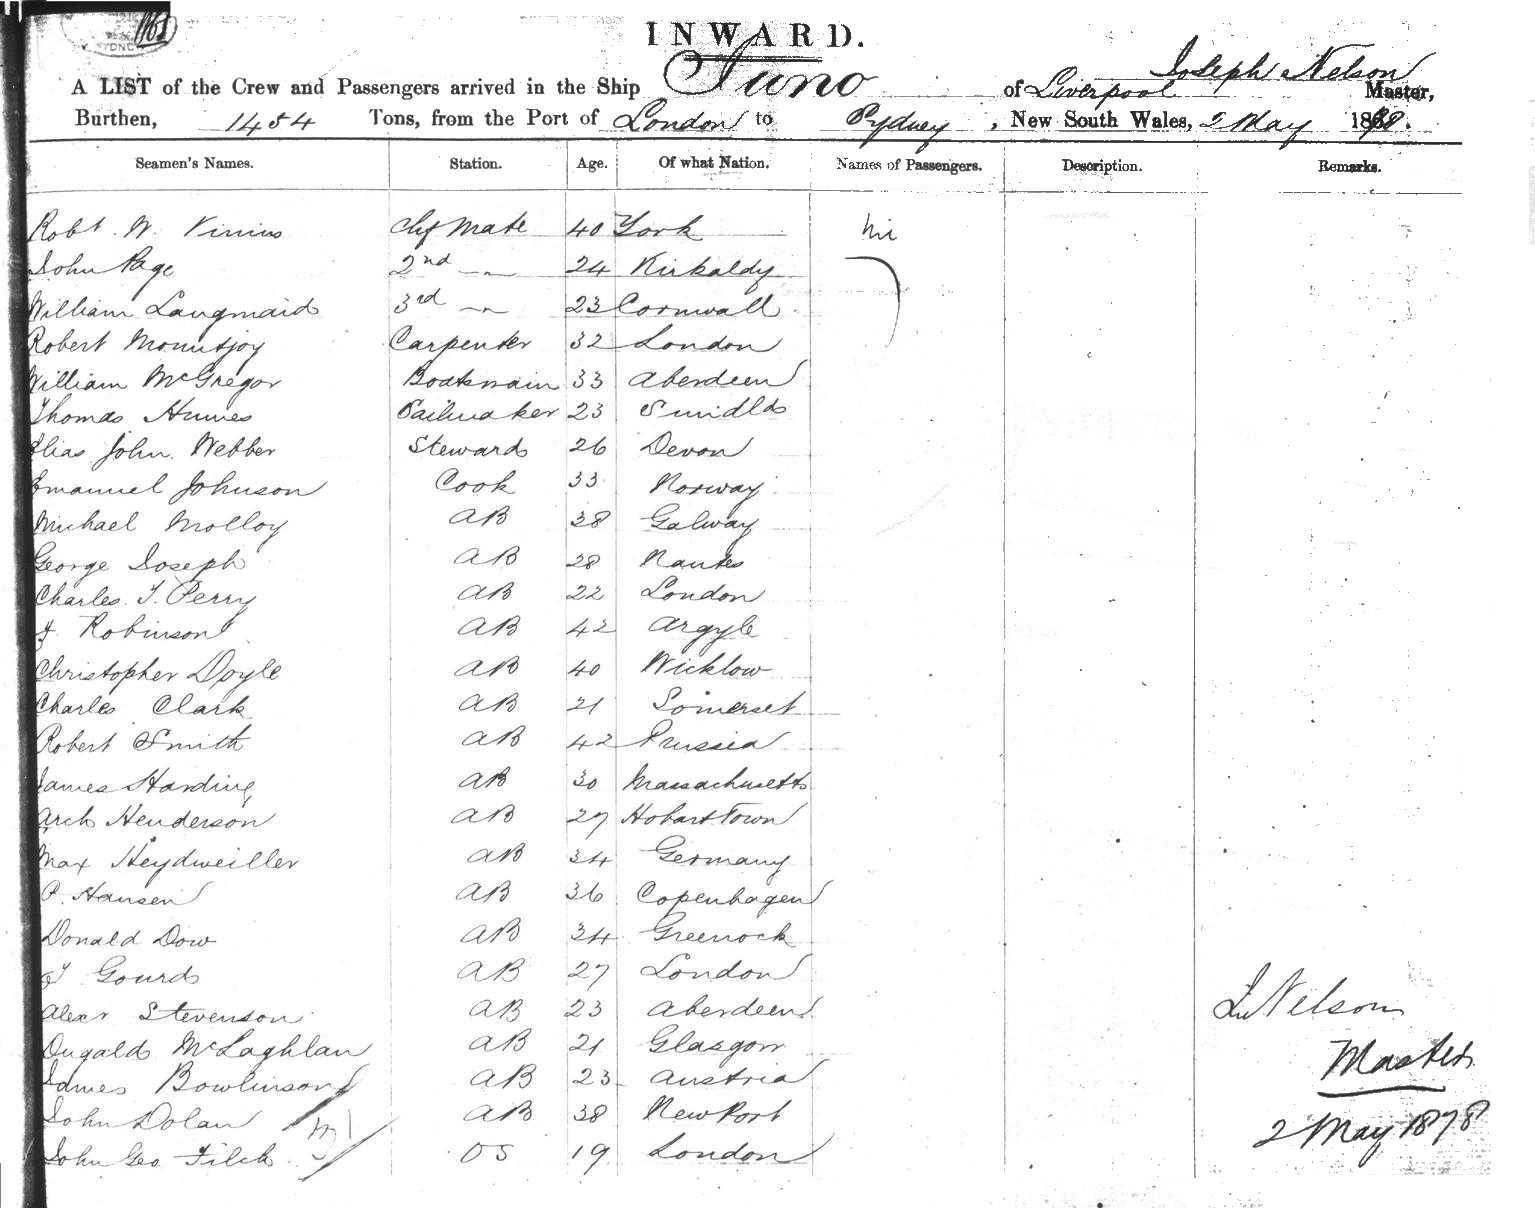 1163
SYDNEY
INWARD.
A LIST of the Crew and Passengers arrived in the Ship Juno of Liverpool Joseph Nelson Master,
Burthen, 1454 Tons, from the Port of London to Sydney, New South Wales, 2 May 1878.
Seamen's Names. Station. Age. Of what Nation. Names of Passengers. Description. Remarks.
Robt. W. Chf Mate 40 York
John Page 2nd -"- 24 Kirkaldy
William Langmaid 3rd -"- 23 Cornwall
Robert Mountjoy Carpenter 32 London
William McGregor Boatswain 33 Aberdeen
Thomas Humes Sailmaker 23
Elias John Webber Steward 26 Devon
Emanuel Johnson Cook 33 Norway
Michael Molloy AB 38 Galway
George Joseph AB 28 Nantes
Charles T. Perry AB 22 London
J. Robinson AB 42 Argyle
Christopher Doyle AB 40 Wicklow
Charles Clark AB 21 Somerset
Robert Smith AB 42 Prussia
James Harding AB 30 Massachusetts
Arch Henderson AB 27 Hobart Town
Max Heydweiller AB 34 Germany
P. Hansen AB 36 Copenhagen
Donald Dow AB 34 Greenock
J Gourd AB 27 London
Alexr Stevenson AB 23 Aberdeen
Dugald McLaghlan AB 21 Glasgow
James Bowlinson AB 23 Austria
John Dolan AB 38 NewPort
John Geo Filck OS 19 London
Nelson
Master
2 May 1878